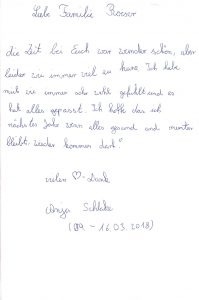 Liebe Familie Rosser
die Zeit bei Euch war wunder schön, aber
leider wie immer viel zu kurz. Ich habe
mich wie immer sehr wohl gefühlt und es
hat alles gepasst. Ich hoffe das ich
nächstes Jahr wenn alles gesund und munter
bleibt, wieder kommen darf"
vielen ♡-Dank
Schlake
(09 - 16.03.2018)